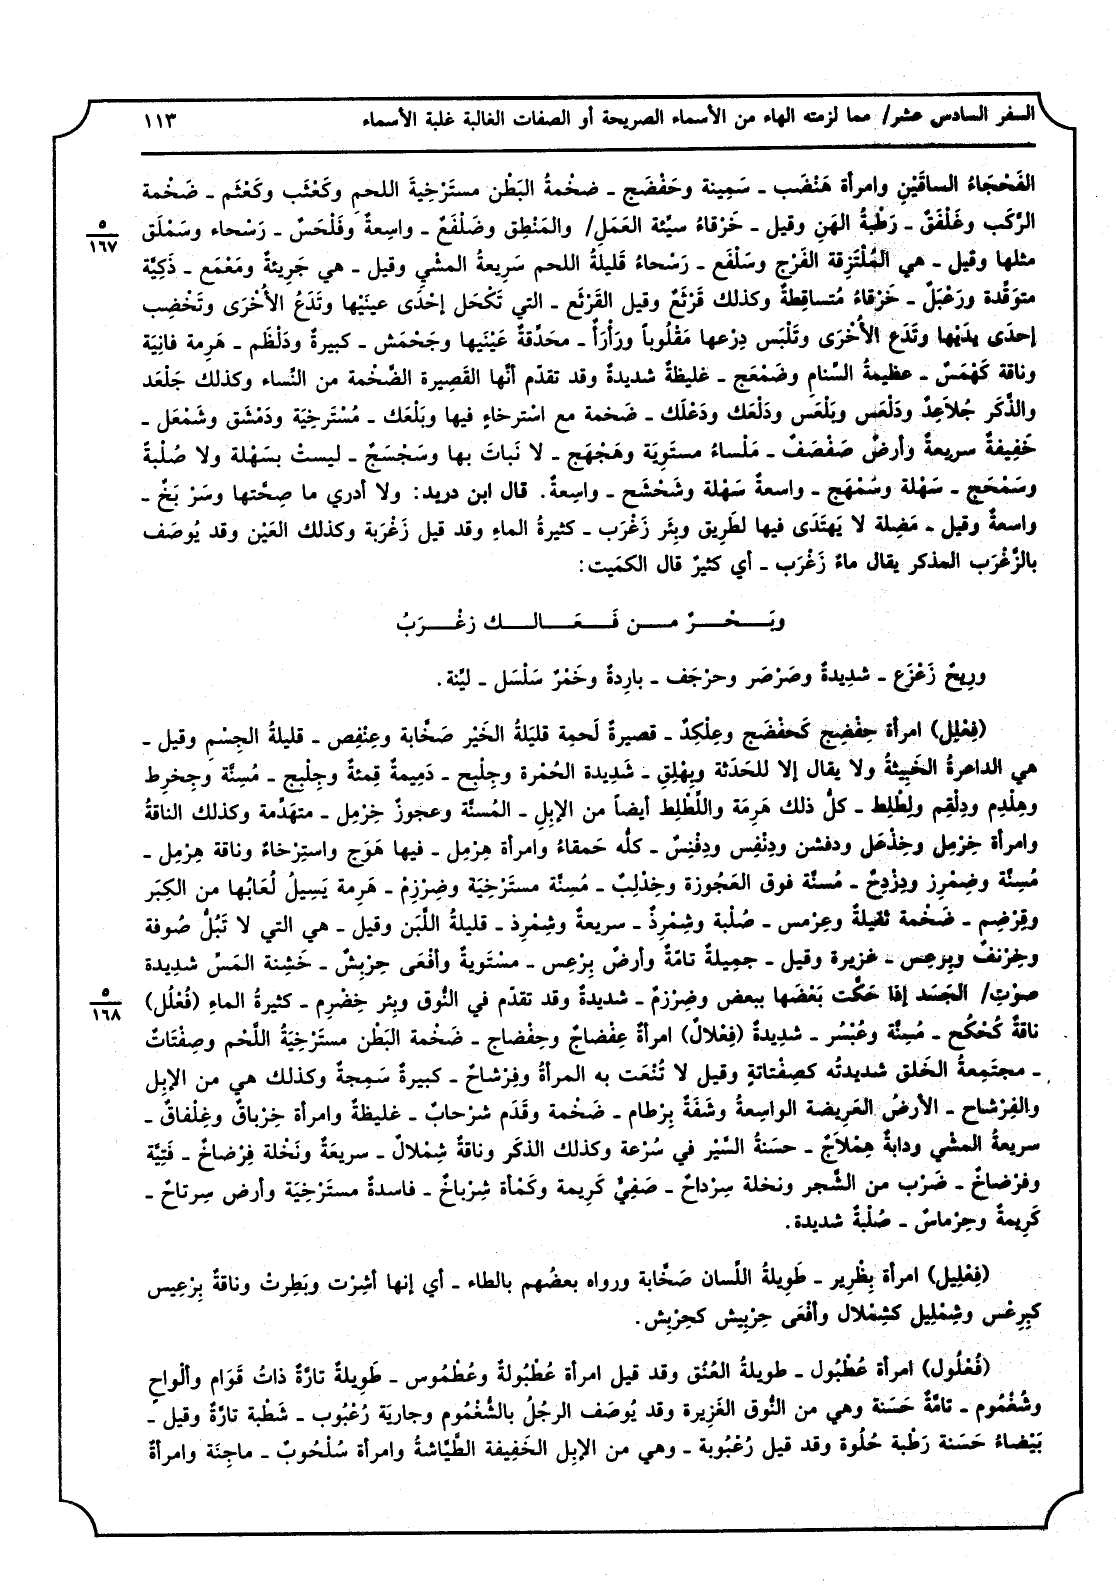 السفر السادس عشر/ مما لزمته الهاء من الأسماء الصريحة أو الصفات الغالبة غلبة الأسماء ١١٣
الفَحْجَاءُ الساقَيْنِ وامرأة هَنْضَب ـ سَمِينة وحَفْضَج ـ ضخْمةُ البَطْن مستَرْخِيةَ اللحم وكَعْثَب وكَعْثَم ـ ضَخْمة
الرَّكَب وغَلْفَقٌ ـ رَطْبةُ الهَنِ وقيل ـ خَرْقاءُ سيِّئة العَمَل/ والمَنْطِق وضَلْفَعٌ ـ واسِعةٌ وفَلْحَسٌ ـ رَسْحاء وسَمْلَق
٥
١٦٧
مثلها وقيل ـ هي المُلْتَزِقة الفَرْج وسَلْفَع ـ رَسْحاءُ قَلِيلةُ اللحم سَرِيعةُ المشْيِ وقيل ـ هي جَرِيئةٌ ومَعْمَع ـ ذَكِيَّة
متوَقِّدة ورَعْبَلٌ ـ خَرْقاءُ مُتساقِطةٌ وكذلك قَرْثَعٌ وقيل القَرْثَع ـ التي تَكْحَل إحْدَى عينَيْها وتَدَعُ الأُخْرَى وتَخْضِب
إحدَى يدَيْها وتَدَع الأُخْرَى وتَلْبَس دِرْعها مَقْلُوباً ورَأْرَأٌ ـ محَدِّقةٌ عَيْنَيها وجَحْمَش ـ كبيرةٌ ودَلْظَم ـ هَرِمة فانِيَة
وناقة كَهْمَسٌ ـ عظيمةُ السَّنامِ وضَمْعَج ـ غليظةٌ شديدةٌ وقد تقدّم أنَّها القَصِيرة الضَّخْمة من النَّساء وكذلك جَلْعَد
والذَّكَر جُلاَعِدٌ ودَلْعَس وبَلْعَس ودَلْعَك ودَعْلَك ـ ضَخمة مع اسْترخاءٍ فيها وبَلْعَك ـ مُسْتَرْخِيَة ودَمْشَق وشَمْعَل ـ
خَفِيفةٌ سريعةٌ وأرضٌ صَفْصَفٌ ـ مَلْساءُ مستَوِيَة وهَجْهَج ـ لا نَباتَ بها وسَجْسَجٌ ـ ليستْ بسَهْلة ولا صُلْبةٌ
وسَمْحَج ـ سَهْلة وسُمْهَج ـ واسعةٌ سَهْلة وشَحْشَح ـ واسِعةٌ. قال ابن دريد: ولا أدري ما صِحَّتها وسَرْ بَخٌ ـ
واسعةٌ وقيل ـ مَضِلة لا يَهتَدَى فيها لطَرِيق وبِئَر زَغْرَب ـ كثيرةُ الماءِ وقد قيل زَغْرَبة وكذلك العَيْن وقد يُوصَف
بالزَّغْرَب المذكر يقال ماءٌ زَغْرَب ـ أي كثيرٌ قال الكمَيت:
وبَـــحْـــرٌ مـــن فَـــعَـــالـــك زغْـــرَبُ
ورِيحٌ زَعْزَع ـ شدِيدةٌ وصَرْصَر وحرْجَف ـ بارِدةٌ وخَمْرٌ سَلْسَل ـ ليِّنة.
(فِعْلِل) امرأة حِفْضِج كَحفْضَج وعِلْكِدٌ ـ قصيرةٌ لَحمِة قليَلةُ الخَيْر صَخَّابة وعِنْفِص ـ قليلةُ الجِسْمِ وقيل ـ
هي الداعرةُ الخَبِيثةُ ولا يقال إلا للحَدَثة وبِهْلِقِ ـ شَدِيدة الحُمْرة وجِلْبِح ـ دَمِيمةٌ قِمئةٌ وجِلْبِج ـ مُسِنَّة وجِخرِط
وهِلْدِم ودِلْقِم ولِطْلِط ـ كلُّ ذلك هَرِمَة واللِّطْلِط أيضاً من الإبِلِ ـ المُسنَّة وعجوزٌ خِرْمِل ـ متهَدِّمة وكذلك الناقةُ
وامرأة خِرْمِل وخِذْعَل ودفشن ودِنْفِس ودِفْنِسٌ ـ كلُّه حَمقاءُ وامرأة هِرْمِل ـ فيها هَوَج واستِرْخاءُ وناقة هِرْمِل ـ
مُسِنَّة وضِمْرِز ودِرْدِحٌ ـ مُسنَّة فوق العَجُوزة وخِذْلِبٌ ـ مُسِنَّة مستَرْخِيَة وضِرْزِمْ ـ هَرِمة يَسِيلُ لُعَابُها من الكِبَر
وقِرْضِم ـ ضَخْمة ثَقِيلةٌ وعِرْمس ـ صُلْبة وشِمْرِذٌ ـ سريعةٌ وشِمْرِذ ـ قليلةُ اللَّبَن وقيل ـ هي التي لا تَبُلُّ صُوفة
وخِرْنفٌ وبِرعِس ـ غزيرة وقيل ـ جمِيلةٌ تامَّةٌ وأرضٌ بِرْعِس ـ مسْتَويةٌ وأفْعَى حِرْبِشٌ ـ خَشِنة المَسِّ شديدة
صوْتِ/ الجَسَد إذا حَكَّت بَعْضَها ببعض وضِرْزمٌ ـ شديدةٌ وقد تقدّم في النُّوق وبِئر خِضْرِم ـ كثيرةُ الماءِ (فُعْلُل)
٥
١٦٨
ناقةٌ كُحْكُح ـ مُسِنَّة وعُبْسُر ـ شديدةٌ (فِعْلالٌ) امرأةٌ عِفْضاجٌ وحِفْضاج ـ ضَخْمة البَطْن مستَرْخِيَةُ اللَّحْم وصِفْتَاتٌ
ـ مجتَمِعةُ الخَلق شديدتُه كصِفْتاتةٍ وقيل لا تُنْعَت به المرأةُ وفِرْشاحٌ ـ كبيرةٌ سَمِجةٌ وكذلك هي من الإبِل
والفِرْشاح ـ الأرضُ العَرِيضة الواسِعةُ وشَفَةٌ بِرْطام ـ ضَخْمة وقَدَم شرْحابٌ ـ غليظةٌ وامرأة خِزْباقٌ وغِلْفاقٌ ـ
سريعةُ المشْي ودابةٌ هِمْلاَجٌ ـ حسَنةُ السَّيْر في سُرْعة وكذلك الذكَر وناقةٌ شِمْلالٌ ـ سريعَةٌ ونَخْلة فِرْضاخٌ ـ فَتِيَّة
وفرْضاخٌ ـ ضَرْب من الشَّجر ونخلة سِرْداحٌ ـ صَفِيُّ كَرِيمة وكَمْأة شِرْباخٌ ـ فاسدةٌ مستَرْخِيَة وأرض سِرتاحٌ ـ
كَرِيمةٌ وحِرْماسٌ ـ صُلْبةٌ شديدة.
(فِعْلِيل) امرأة بِظْرِير ـ طَويلةُ اللَّسان صَخَّابة ورواه بعضُهم بالطاء ـ أي إنها أشِرْت وبَطِرتْ وناقةٌ بِرْعِيس
كبِرعْس وشِمْلِيل كشِمْلال وأفْعَى حِرْبِيش كحِرْبِش.
(فُعْلُول) امرأة عُطْبُول ـ طويلةُ العُنُق وقد قيل امرأة عُطْبُولةٌ وعُطْمُوس ـ طَوِيلةٌ تارَّةٌ ذاتُ قَوَام وألْواحٍ
وشُغْمُوم ـ تامَّةٌ حَسَنة وهي من النُّوق الغَزِيرة وقد يُوصَف الرجُلُ بالشُّغْمُوم وجاريَة رُعْبُوب ـ شَطْبة تارَّةٌ وقيل ـ
بَيْضاءُ حَسَنة رَطْبة حُلُوة وقد قيل رُعْبُوبة ـ وهي من الإبِل الخَفِيفة الطَّيَّاشةُ وامرأة سُلْحُوبٌ ـ ماجِنَة وامرأةٌ